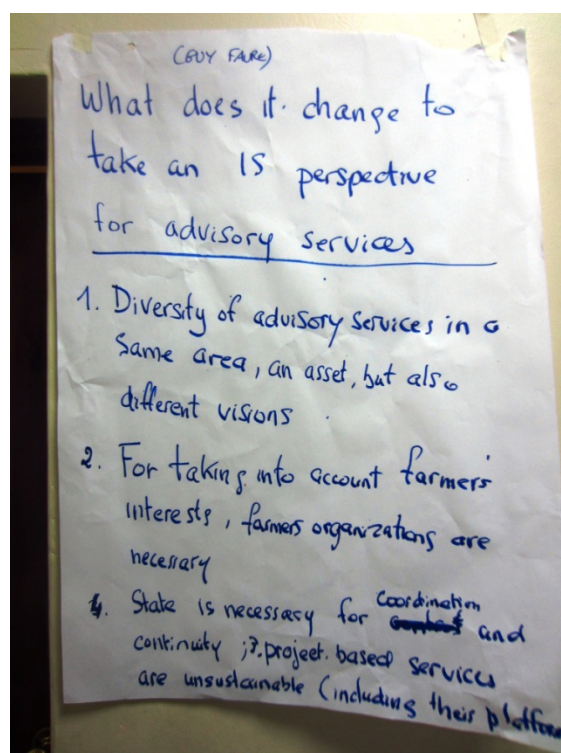 (GUY FAURE)
What does it change to
take an IS perspective
for advisory services
1. Diversity of advisory services in a
same area, an asset, but also
different visions
2. For taking into account farmer's
interests, farmers organizations are
necessary
4. State is necessary for coordination and
continuity ;3. project based services
are unsustainable (including their platform